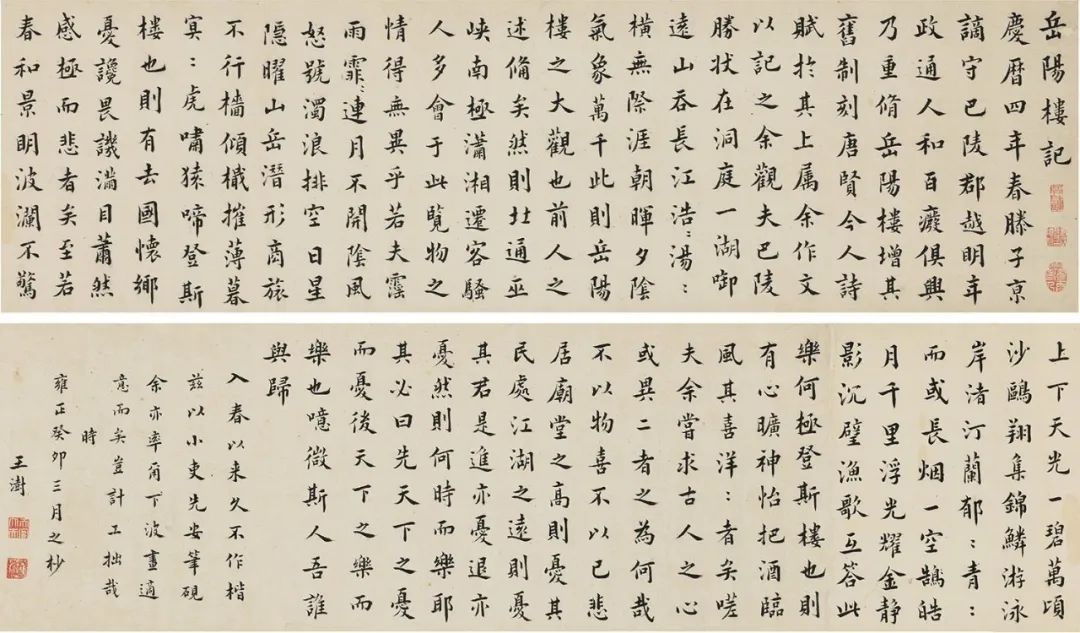 岳陽樓記
慶曆四年春滕子京
謫守巴陵郡越明年
政通人和百癈俱興
乃重脩岳陽樓增其
舊制刻唐賢今人詩
賦於其上属余作文
以記之余觀夫巴陵
勝状在洞庭一湖啣
遠山吞長江浩:湯:
橫無際涯朝暉夕陰
氣象萬千此則岳陽
樓之大觀也前人之
述俻矣然則北通巫
峡南極瀟湘遷客騷
人多會于此覽物之
情得無異乎若夫霪
雨霏:連月不開陰風
怒號濁浪排空日星
隱曜山岳潛形商旅
不行檣傾檝摧薄暮
冥:虎嘯猿啼登斯
樓也則有去國懷鄉
憂讒畏譏滿目蕭然
感極而悲者矣至若
春和景明波瀾不驚
上下天光一碧萬頃
沙鷗翔集錦鱗游泳
岸渚汀蘭郁:青:
而或長烟一空鵠皓
月千里浮光耀金静
影沉璧漁歌互荅此
樂何極登斯樓也則
有心曠神怡把酒臨
風其喜洋:者矣嗟
夫余嘗求古人之心
或異二者之為何哉
不以物喜不以己悲
居廟堂之高則憂其
民處江湖之遠則憂
其君是進亦憂退亦
憂然則何時而樂耶
其必曰先天下之憂
而憂後天下之樂而
樂也噫微斯人吾誰
與歸
入春以来久不作楷
兹以小吏先安筆硯
余亦率角下波畫適
意而矣豈計工拙哉
時
雍正癸卯三月之杪
王澍